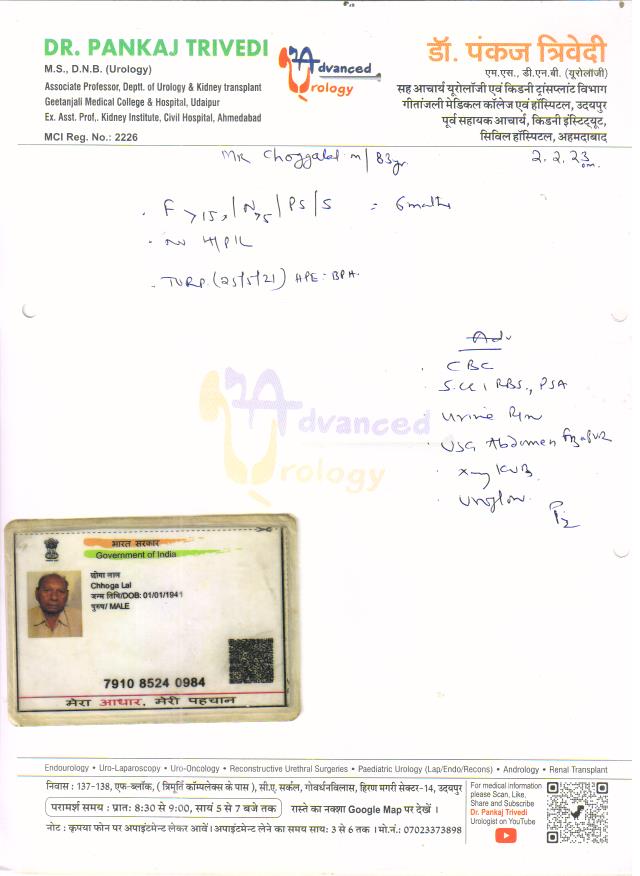 DR. PANKAJ TRIVEDI
M.S., D.N.B. (Urology)
Associate Professor, Deptt. of Urology & Kidney transplant
Geetanjali Medical College & Hospital, Udaipur
Ex. Asst. Prof.. Kidney Institute, Civil Hospital, Ahmedabad
MCI Reg. No.: 2226
Advanced
Urology
डॉ. पंकज त्रिवेदी
एम.एस., डी.एन.बी. (यूरोलॉजी)
सह आचार्य यूरोलॉजी एवं किडनी ट्रांसप्लांट विभाग
गीतांजली मेडिकल कॉलेज एवं हॉस्पिटल, उदयपुर
पूर्व सहायक आचार्य, किडनी इंस्टिट्यूट,
सिविल हॉस्पिटल, अहमदाबाद
2.2.23
TURP. (25/5/21) HPE - BPH.
Adv
CBC
RBS., PSA
Urine
USG Abdomen
Xray KUB
Uroflow
Advanced
Urology
भारत सरकार
Government of India
छोगा लाल
Chhoga Lal
जन्म तिथि/DOB: 01/01/1941
पुरुष/ MALE
7910 8524 0984
मेरा आधार, मेरी पहचान
Endourology • Uro-Laparoscopy • Uro-Oncology • Reconstructive Urethral Surgeries • Paediatric Urology (Lap/Endo/Recons) • Andrology • Renal Transplant
निवास : 137-138, एफ-ब्लॉक, ( त्रिमूर्ति कॉम्पलेक्स के पास ), सी.ए. सर्कल, गोवर्धनविलास, हिरण मगरी सेक्टर-14, उदयपुर
परामर्श समय : प्रातः 8:30 से 9:00, सायं 5 से 7 बजे तक रास्ते का नक्शा Google Map पर देखें ।
नोट : कृपया फोन पर अपाइंटमेन्ट लेकर आवें। अपाइंटमेन्ट लेने का समय सायः 3 से 6 तक । मो.नं.: 07023373898
For medical information
please Scan, Like,
Share and Subscribe
Dr. Pankaj Trivedi
Urologist on YouTube